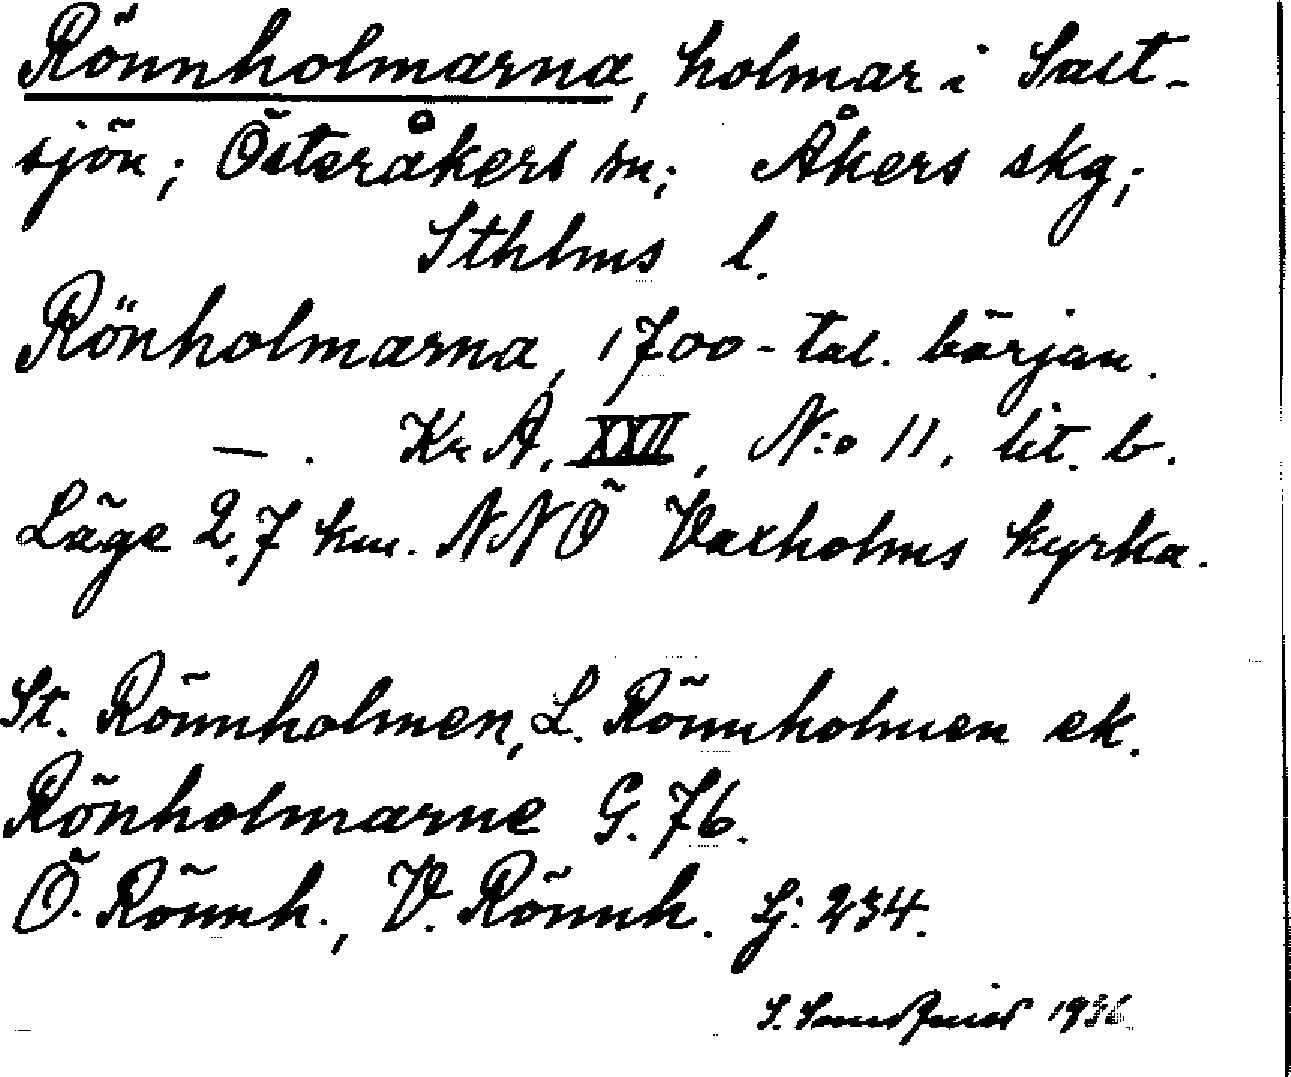 Rönnholmarna, holmar i Salt-
sjön; Österåkers sn; Åkers skg;
Sthlms l.
Rönholmarna, 1700-tal. början.
— . Kr A, XXII, N:o 11, lit. b.
Läge 2,7 km. NNÖ Vaxholms kyrka.
St. Rönnholmen, L. Rönnholmen ek.
Rönholmarne G. 76.
Ö. Rönnh., V. Rönnh. Sj: 234.
S. 1936